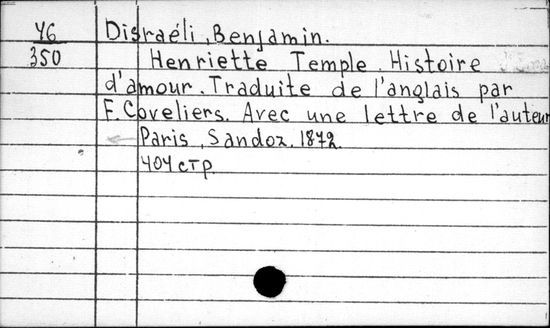 46
350
Disraéli, Benjamin.
Henriette Temple. Histoire
d'amour. Traduite de l'anglais par
F. Coveliers. Avec une lettre de l'auteur
Paris, Sandoz, 1872.
404 стр.